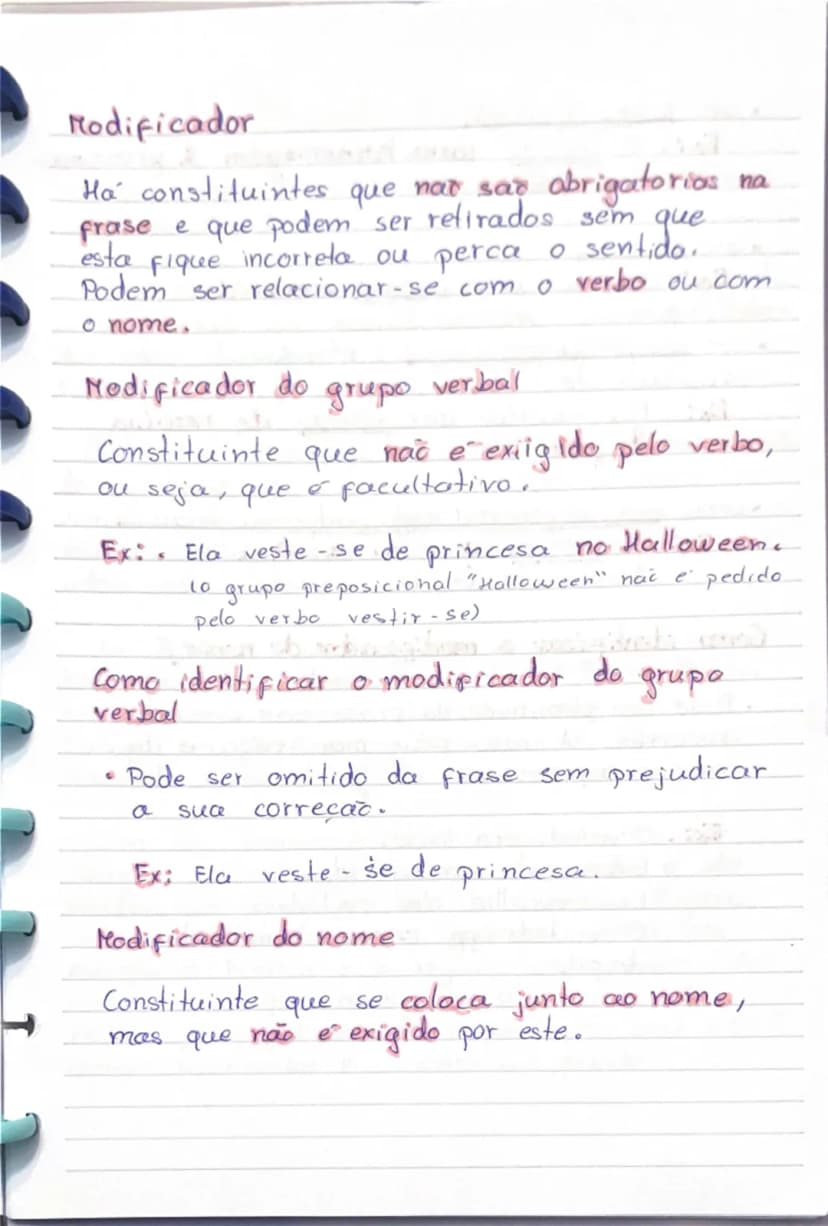 Modificador
Há constituintes que não são abrigatorios na
frase e que podem ser retirados sem que
esta fique incorreta ou perca o sentido.
Podem ser relacionar-se com o verbo ou com
o nome.
Modificador do grupo verbal
Constituinte que não é exiigido pelo verbo,
ou seja, que é facultativo.
Ex: • Ela veste-se de princesa no Halloween.
(o grupo preposicional "Halloween" não é pedido
pelo verbo vestir-se)
Como identificar o modificador do grupo
verbal
• Pode ser omitido da frase sem prejudicar
a sua correção.
Ex: Ela veste-se de princesa.
Modificador do nome
Constituinte que se coloca junto ao nome,
mas que não é exigido por este.